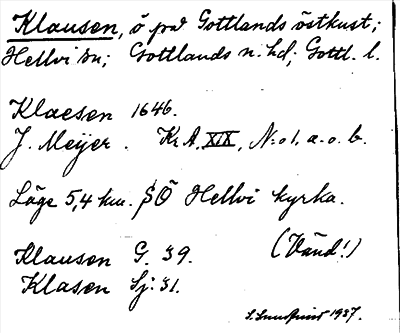 Klausen, ö på Gottlands östkust;
Hellvi sn; Gottlands n. hd; Gottl. l.
Klaesen 1646.
J. Meijer. Kr. A. XIX, N:o 1, a. o. b.
Läge 5,4 km. SÖ Hellvi kyrka.
Klausen G. 39. (Vänd!)
Klasen Sj. 31.
1937.